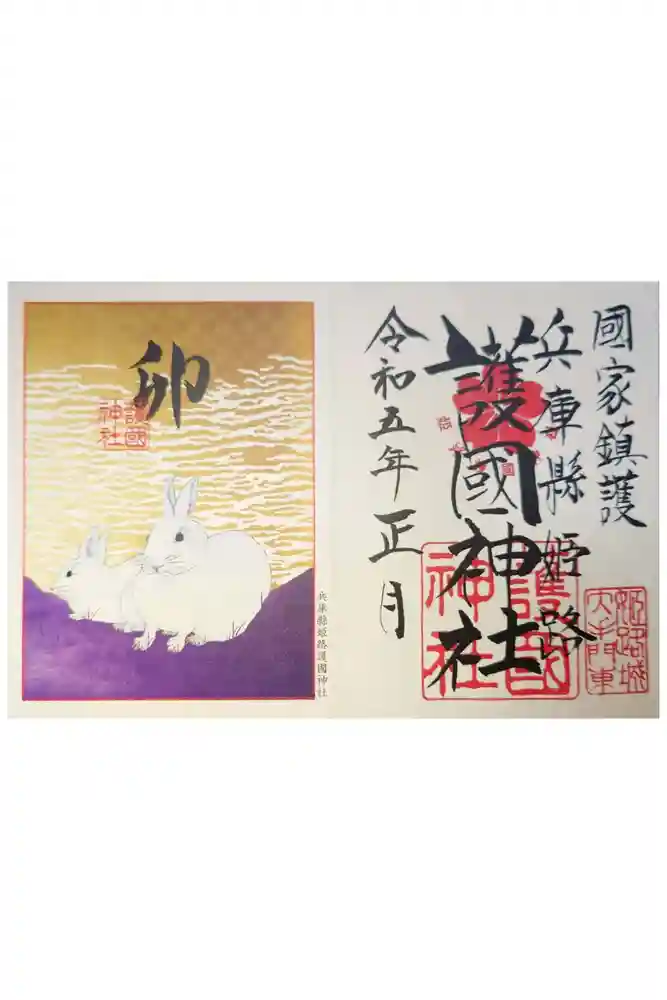 國家鎮護
兵庫縣姫路
護國神社
令和五年正月
姫路城
大手門東
護國
神社
卯
護國
神社
兵庫縣姫路護國神社